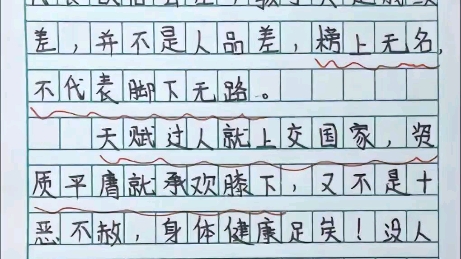 差，并不是人品差，榜上无名，
不代表脚下无路。
天赋过人就上交国家，资
质平庸就承欢膝下，又不是十
恶不赦，身体健康足矣！没人